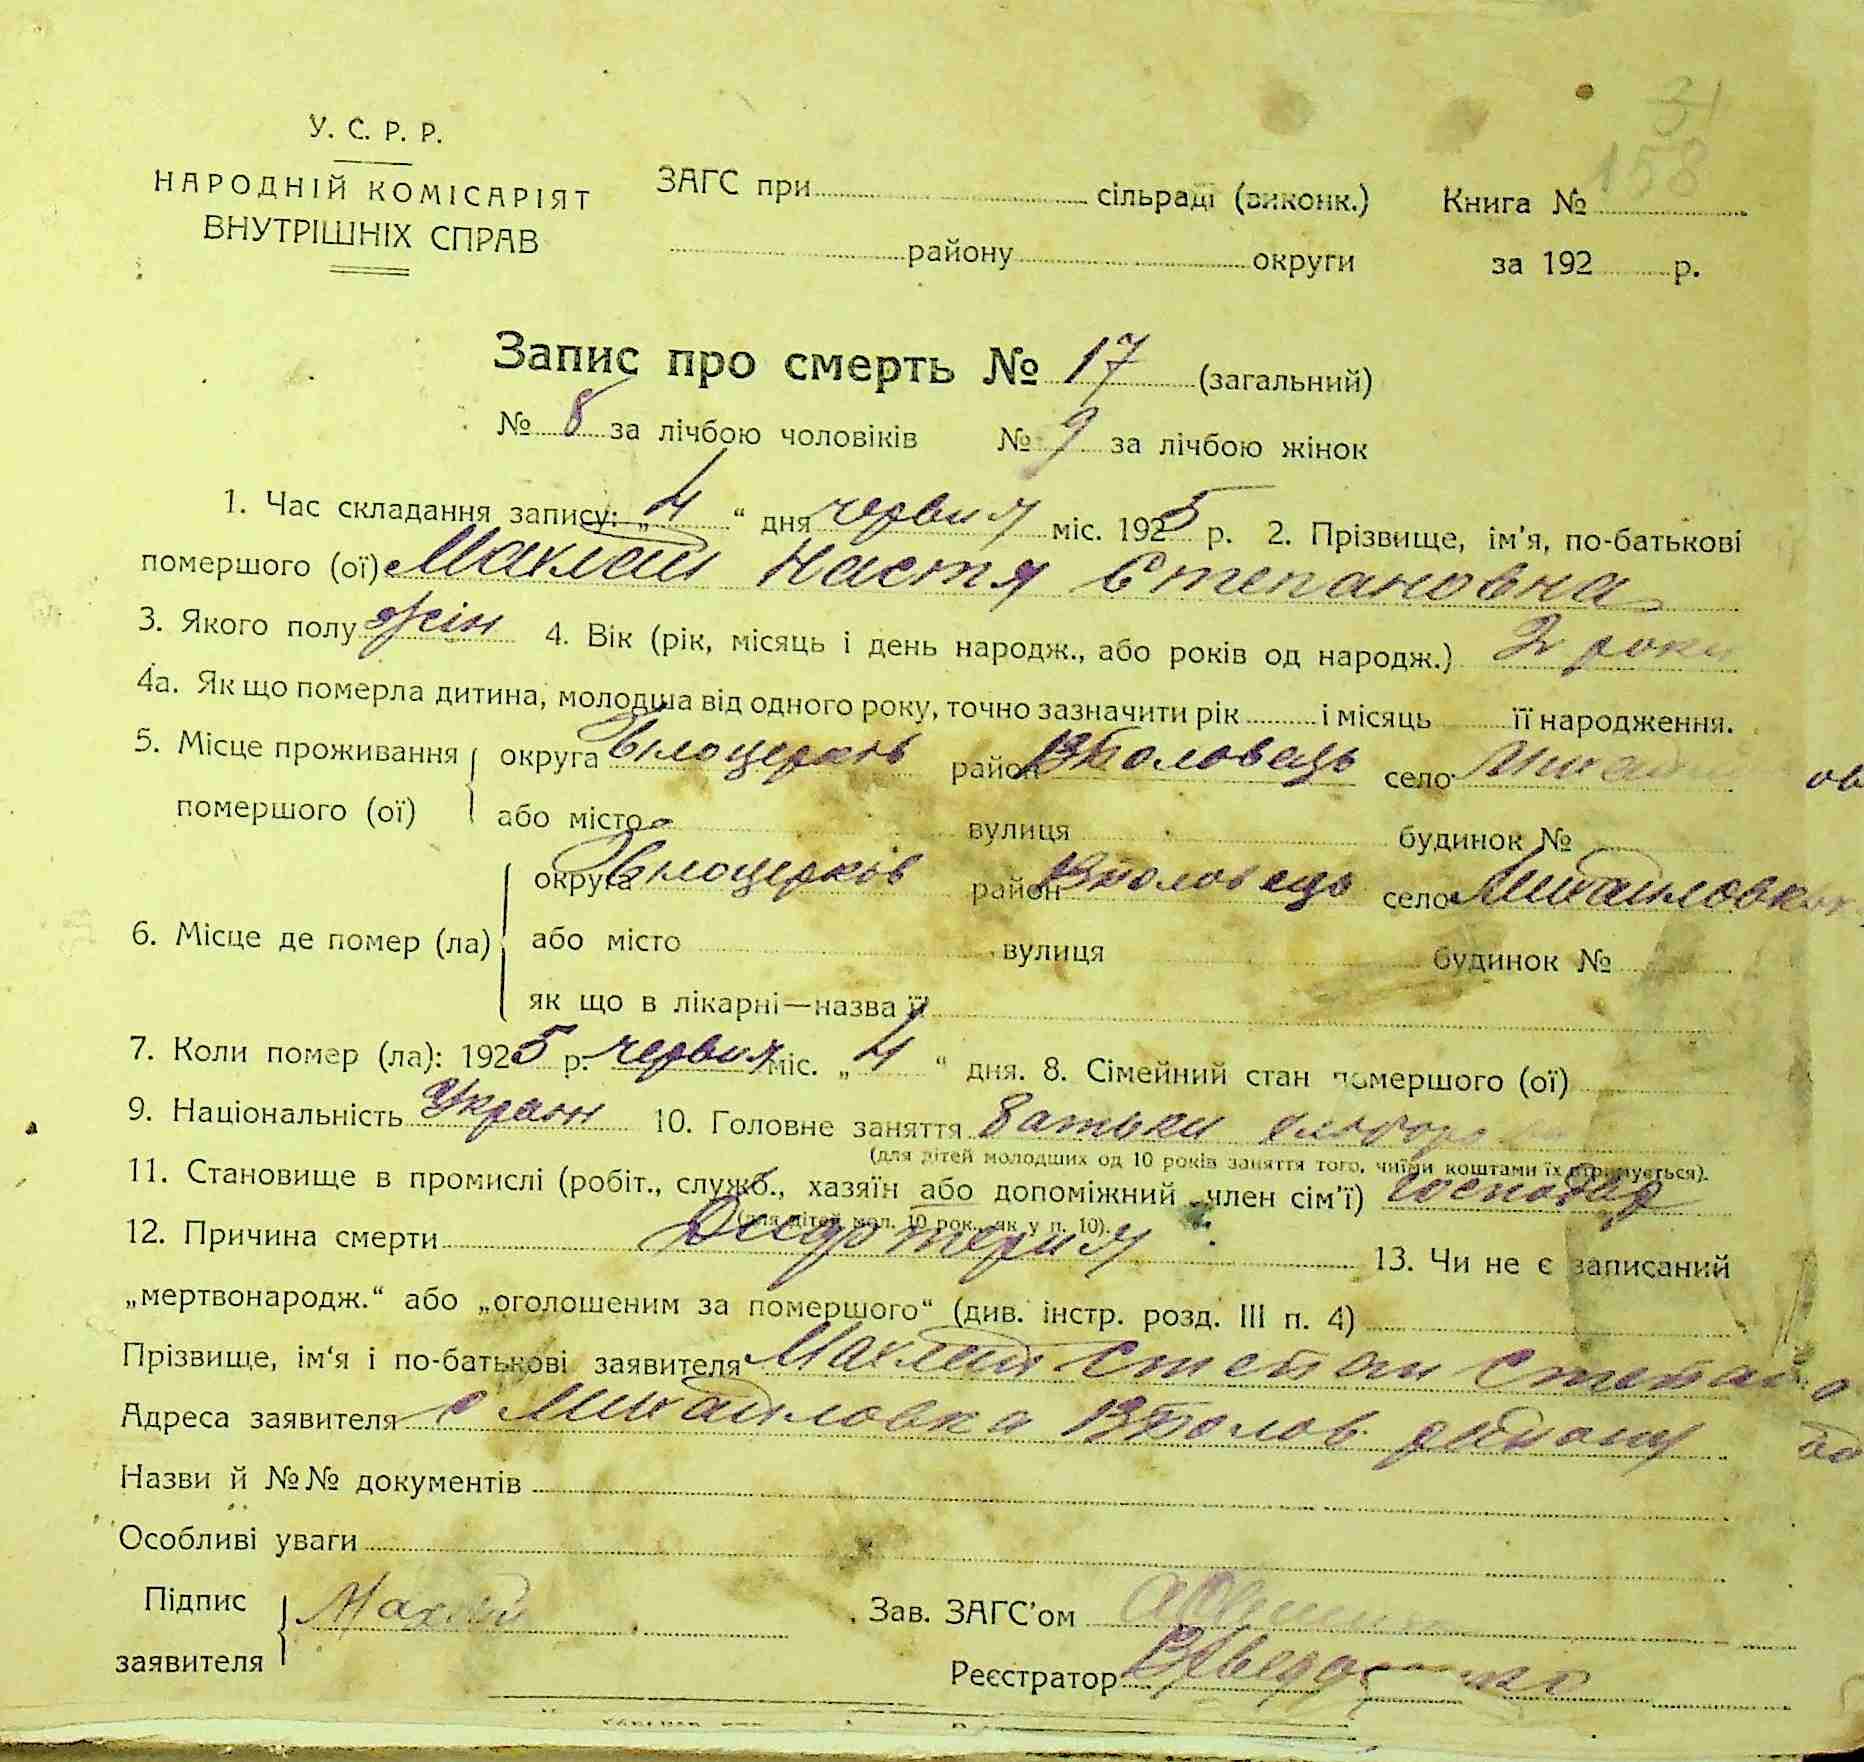 31
158
У. С. Р. Р.
НАРОДНІЙ КОМІСАРІЯТ
ВНУТРІШНІХ СПРАВ
ЗАГС при сільраді (виконк.) Книга №
району округи за 192 р.
Запис про смерть № 17 (загальний)
№ 8 за лічбою чоловіків № 9 за лічбою жінок
1. Час складання запису: „4“ дня червня міс. 1925 р. 2. Прізвище, ім'я, по-батькові
помершого (ої) Махлай Настя Степановна
3. Якого полу жін 4. Вік (рік, місяць і день народж., або років од народж.) 2 роки
4а. Як що померла дитина, молодша від одного року, точно зазначити рік і місяць її народження.
5. Місце проживання округа Білоцерків район ВПоловець село
помершого (ої) або місто вулиця будинок №
округа Білоцерків район ВПоловець село Михайловка
6. Місце де помер (ла) або місто вулиця будинок №
як що в лікарні—назва її
7. Коли помер (ла): 1925 р. червня міс. „4“ дня. 8. Сімейний стан помершого (ої)
9. Національність Україн 10. Головне заняття батьки
(для дітей молодших од 10 років заняття того, чиїми коштами їх отримується).
11. Становище в промислі (робіт., служб., хазяїн або допоміжний член сім'ї) господар
(для дітей мол. 10 рок., як у п. 10).
12. Причина смерти Дифтерия 13. Чи не є записаний
„мертвонародж.“ або „оголошеним за помершого“ (див. інстр. розд. III п. 4)
Прізвище, ім'я і по-батькові заявителя Махлай Степан
Адреса заявителя с Михайловка ВПолов району
Назви й №№ документів
Особливі уваги
Підпис Махлай Зав. ЗАГС'ом
заявителя Реєстратор